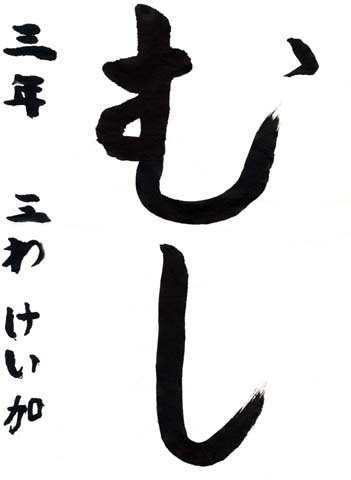 むし
三年 三わ けい加